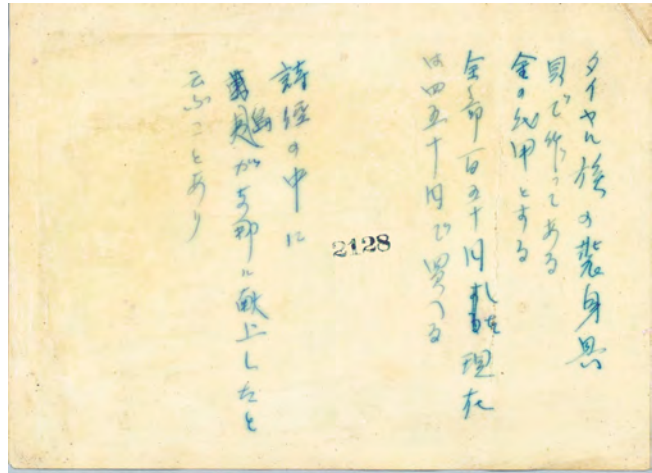 タイヤル族の装身具
貝で作ってある
金の代用とする
全部百五十円 現在
は四五十円で買へる
2128
詩経の中に
貝が支那に献上したと
云ふことあり